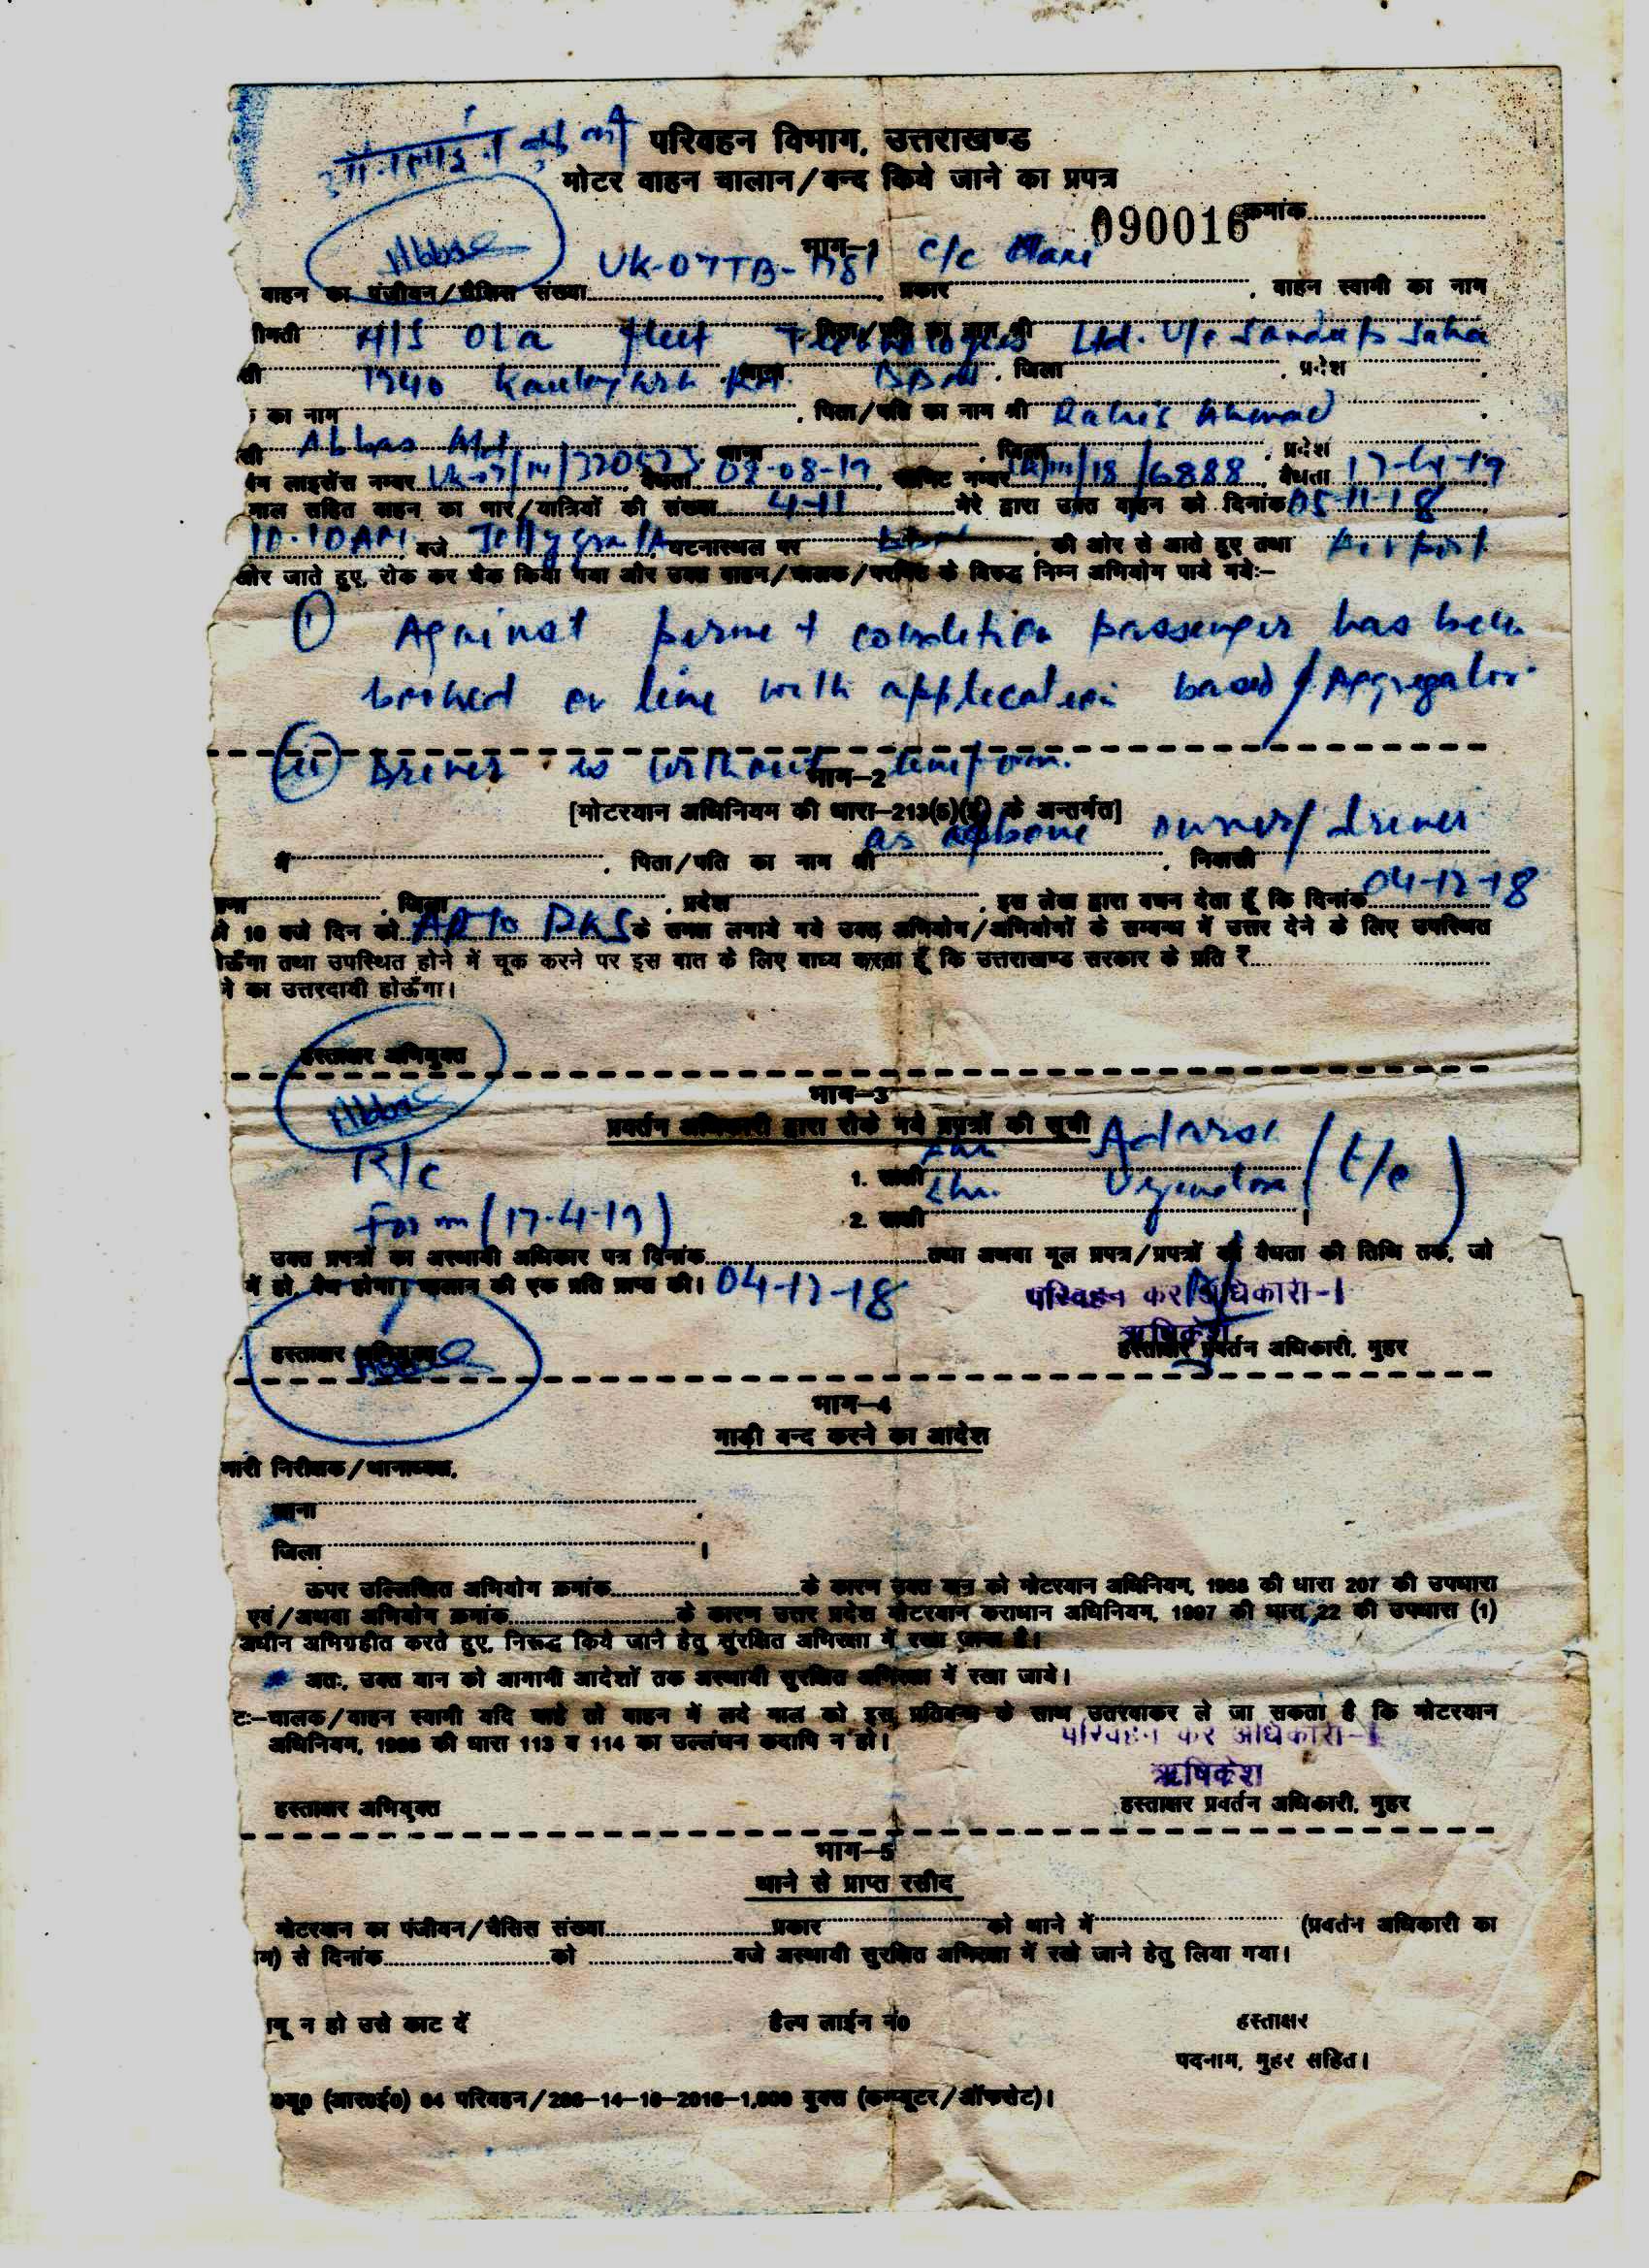 ऑनलाईन बुकिंग
परिवहन विभाग, उत्तराखण्ड
मोटर वाहन चालान/बन्द किये जाने का प्रपत्र
090016 क्रमांक
भाग-1
Abbas UK-07TB- C/C
वाहन का पंजीयन/चैसिस संख्या प्रकार , वाहन स्वामी का नाम
ीमती M/S Ola fleet Technologies Ltd. पिता/पति का नाम श्री
1940 Kaulagarh Rd. थाना , जिला , प्रदेश
का नाम , पिता/पति का नाम श्री Rahis Ahmad
सी Abbas थाना , जिला , प्रदेश
लाइसेंस नम्बर वैधता 08-08-19 परमिट नम्बर /18/6888 वैधता 17-04-19
माल सहित वाहन का भार/यात्रियों की संख्या मेरे द्वारा उक्त वाहन को दिनांक 05-11-18
10.10 AM बजे Jollygrant घटनास्थल पर की ओर से आते हुए तथा Airport
ओर जाते हुए, रोक कर चैक किया गया और उक्त वाहन/चालक/परमिट के विरूद्ध निम्न अभियोग पाये गये:-
(i) Against permit condition passenger has been
booked on line with application based / Aggregator
(ii) Driver is without uniform.
भाग-2
[मोटरयान अधिनियम की धारा-213(5)(ई) के अन्तर्गत]
as above owner/driver
मैं , पिता/पति का नाम श्री , निवासी
थाना , जिला , प्रदेश , इस लेख द्वारा वचन देता हूँ कि दिनांक 04-12-18
10 बजे दिन को ARTO RKS के समक्ष लगाये गये उक्त अभियोग/अभियोगों के सम्बन्ध में उत्तर देने के लिए उपस्थित
होऊँगा तथा उपस्थित होने में चूक करने पर इस बात के लिए बाध्य करता हूँ कि उत्तराखण्ड सरकार के प्रति ₹
ने का उत्तरदायी होऊँगा।
हस्ताक्षर अभियुक्त
Abbas
भाग-3
प्रवर्तन अधिकारी द्वारा रोके गये प्रपत्रों की सूची
R/c
1. साक्षी Shri Adarsh
Form (17-4-19)
2. साक्षी Shri (t/c)
उक्त प्रपत्रों का अस्थायी अधिकार पत्र दिनांक तथा अथवा मूल प्रपत्र/प्रपत्रों की वैधता की तिथि तक, जो
में हो, वैध होगा। चालान की एक प्रति प्राप्त की। 04-12-18
परिवहन कर अधिकारी-1
ऋषिकेश
हस्ताक्षर अभियुक्त हस्ताक्षर प्रवर्तन अधिकारी, मुहर
भाग-4
गाड़ी बन्द करने का आदेश
भारी निरीक्षक/थानाध्यक्ष,
थाना ,
जिला ।
ऊपर उल्लिखित अभियोग क्रमांक के कारण उक्त यान को मोटरयान अधिनियम, 1988 की धारा 207 की उपधारा
एवं/अथवा अभियोग क्रमांक के कारण उत्तर प्रदेश मोटरयान कराधान अधिनियम, 1997 की धारा 22 की उपधारा (1)
अधीन अभिग्रहीत करते हुए, निरूद्ध किये जाने हेतु सुरक्षित अभिरक्षा में रखा जाता है।
अतः, उक्त यान को आगामी आदेशों तक अस्थायी सुरक्षित अभिरक्षा में रखा जाये।
टः-चालक/वाहन स्वामी यदि चाहे तो वाहन में लदे माल को इस प्रतिबन्ध के साथ उतरवाकर ले जा सकता है कि मोटरयान
अधिनियम, 1988 की धारा 113 व 114 का उल्लंघन कदापि न हो।
परिवहन कर अधिकारी-1
ऋषिकेश
हस्ताक्षर अभियुक्त हस्ताक्षर प्रवर्तन अधिकारी, मुहर
भाग-5
थाने से प्राप्त रसीद
मोटरयान का पंजीयन/चैसिस संख्या प्रकार को थाने में (प्रवर्तन अधिकारी का
म) से दिनांक को बजे अस्थायी सुरक्षित अभिरक्षा में रखे जाने हेतु लिया गया।
गू न हो उसे काट दें हैल्प लाईन नं0 हस्ताक्षर
पदनाम, मुहर सहित।
(आर0ई0) 04 परिवहन/286-14-10-2016-1,000 बुक्स (कम्प्यूटर/ऑफसेट)।